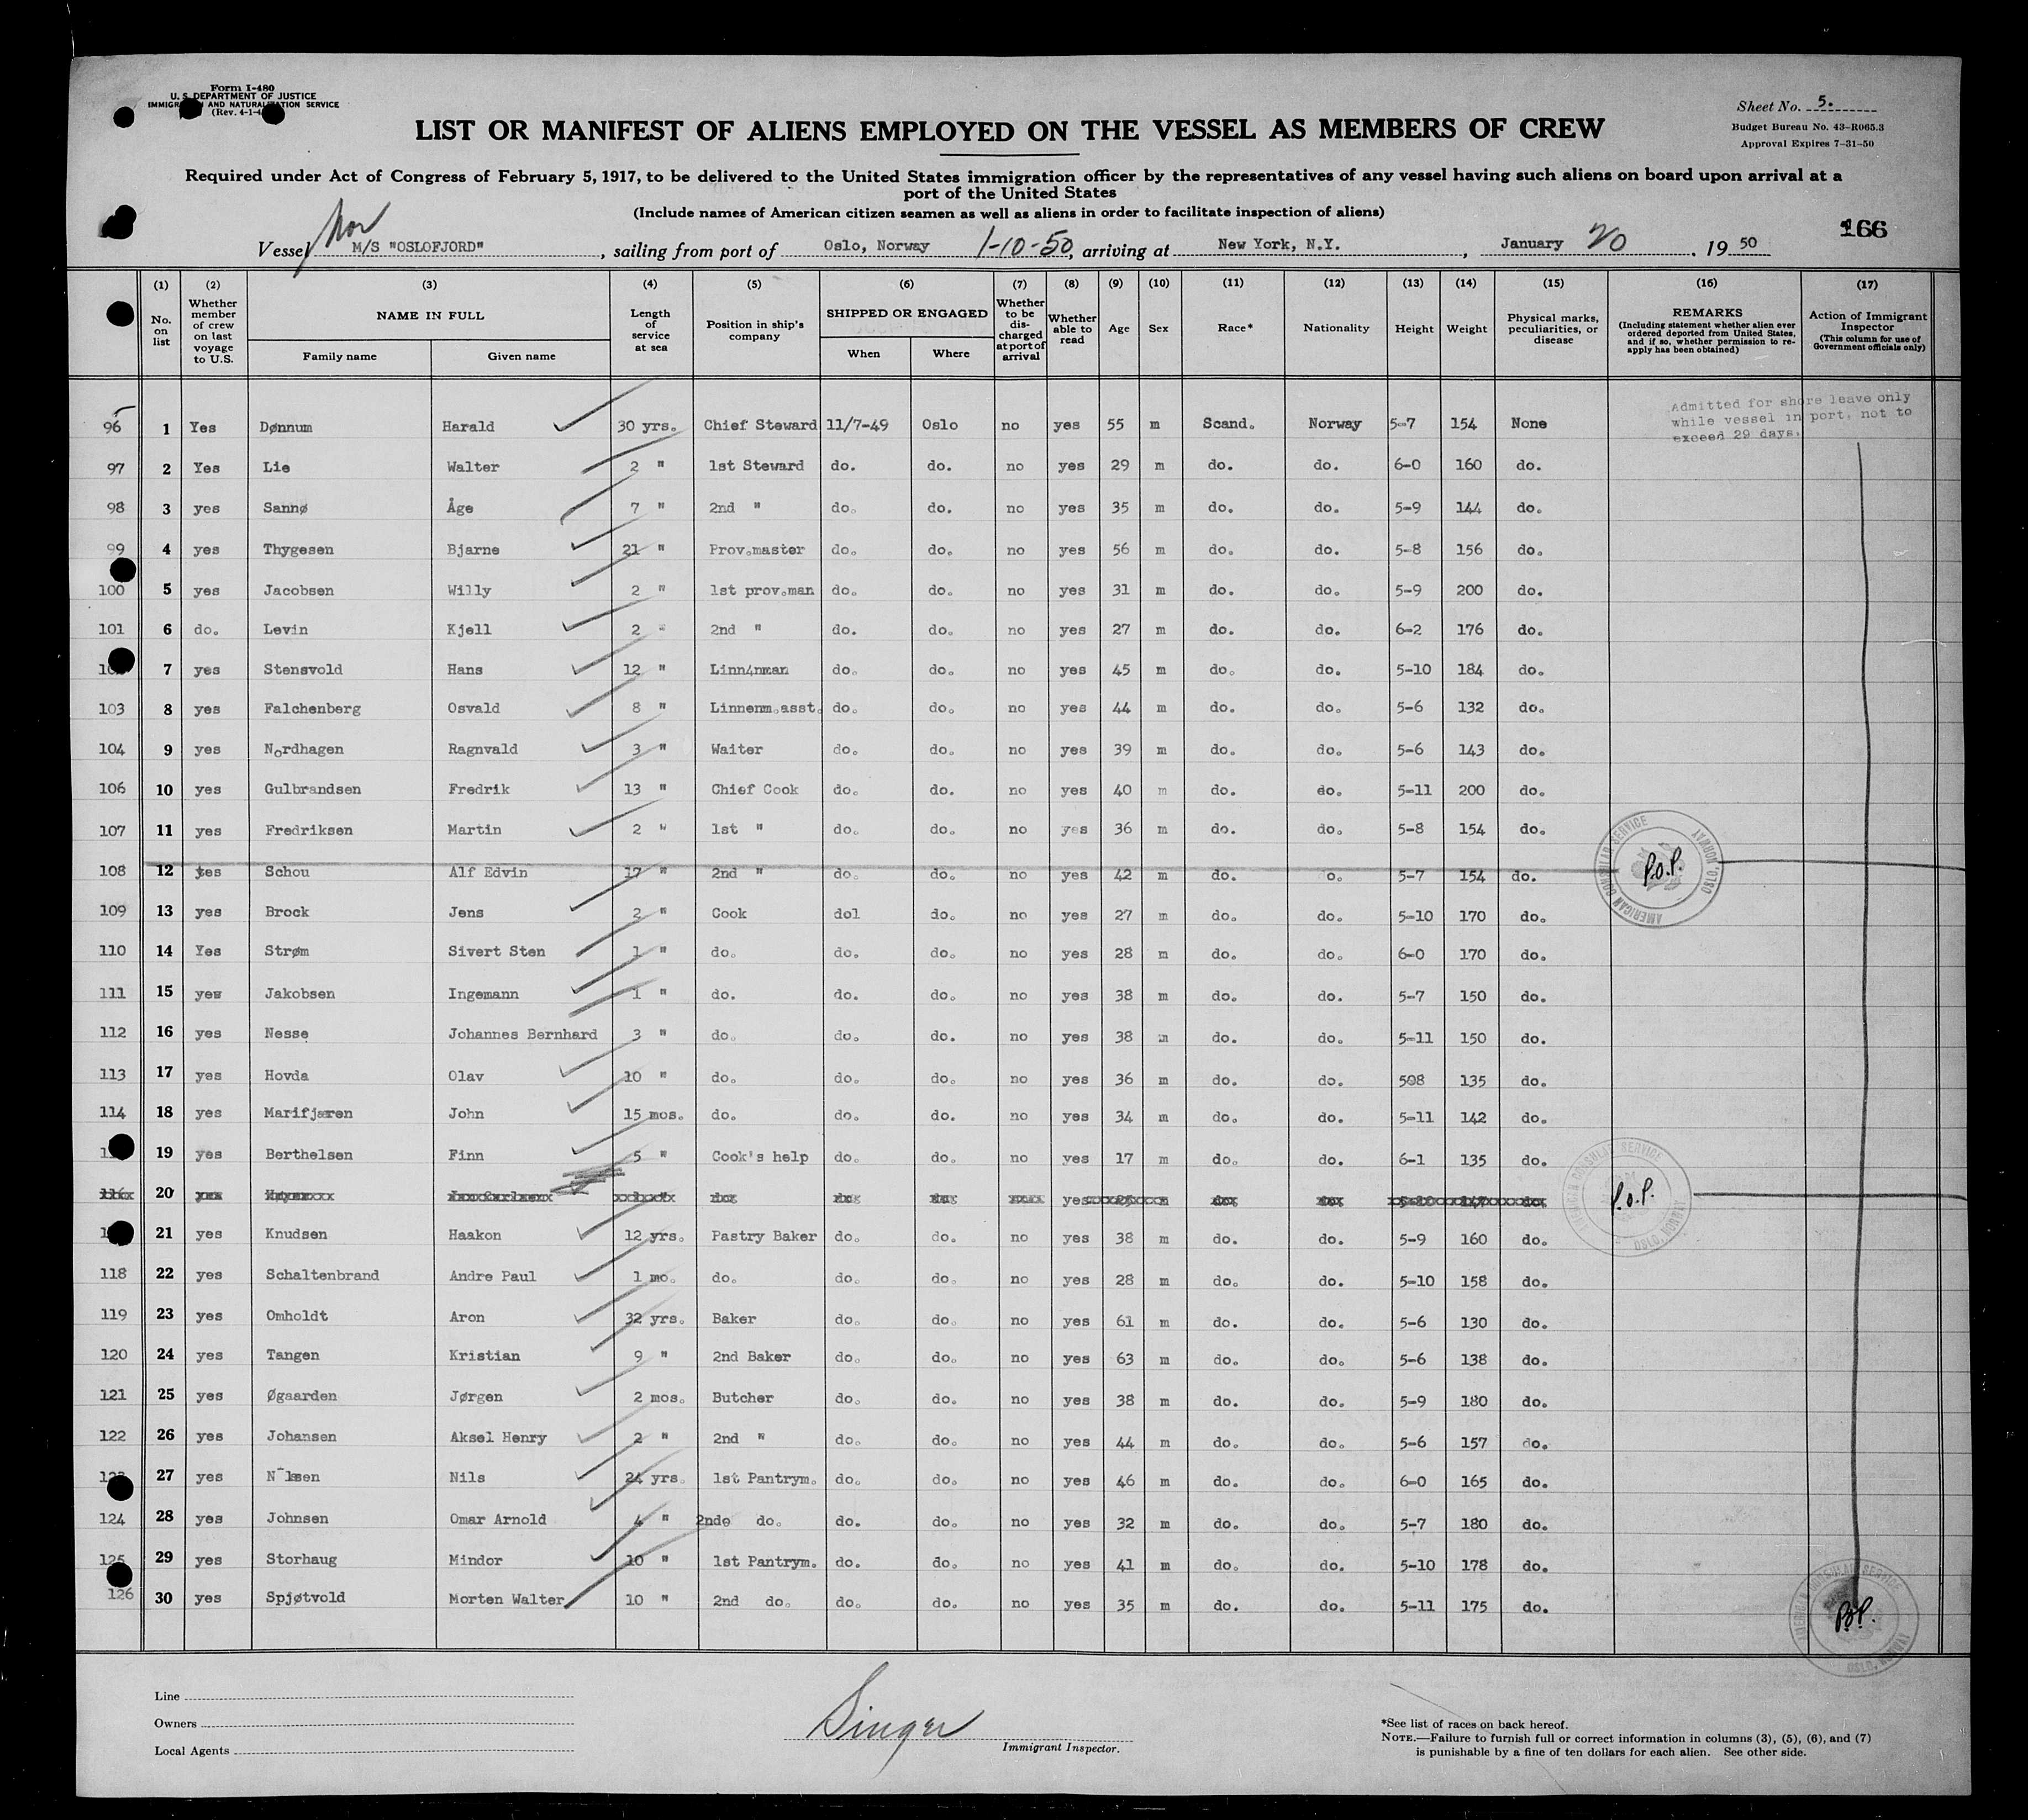 Form I-480
U. S. DEPARTMENT OF JUSTICE
IMMIGRATION AND NATURALIZATION SERVICE
(Rev. 4-1-4
Sheet No. 5.
Budget Bureau No. 43-R065.3
Approval Expires 7-31-50
LIST OR MANIFEST OF ALIENS EMPLOYED ON THE VESSEL AS MEMBERS OF CREW
Required under Act of Congress of February 5, 1917, to be delivered to the United States immigration officer by the representatives of any vessel having such aliens on board upon arrival at a
port of the United States
(Include names of American citizen seamen as well as aliens in order to facilitate inspection of aliens)
166
Nor
Vessel M/S "OSLOFJORD", sailing from port of Oslo, Norway 1-10-50, arriving at New York, N.Y., January 20, 19 50
(1) (2) (3) (4) (5) (6) (7) (8) (9) (10) (11) (12) (13) (14) (15) (16) (17)
No. on list
Whether member of crew on last voyage to U.S.
NAME IN FULL
Family name
Given name
Length of service at sea
Position in ship's company
SHIPPED OR ENGAGED
When
Where
Whether to be discharged at port of arrival
Whether able to read
Age
Sex
Race*
Nationality
Height
Weight
Physical marks, peculiarities, or disease
REMARKS
(Including statement whether alien ever ordered deported from United States, and if so, whether permission to reapply has been obtained)
Action of Immigrant Inspector
(This column for use of Government officials only)
Admitted for shore leave only
while vessel in port, not to
exceed 29 days.
96 1 Yes Dønnum Harald 30 yrs. Chief Steward 11/7-49 Oslo no yes 55 m Scand. Norway 5-7 154 None
97 2 Yes Lie Walter 2 " 1st Steward do. do. no yes 29 m do. do. 6-0 160 do.
98 3 yes Sannø Åge 7 " 2nd " do. do. no yes 35 m do. do. 5-9 144 do.
99 4 yes Thygesen Bjarne 21 " Prov.master do. do. no yes 56 m do. do. 5-8 156 do.
100 5 yes Jacobsen Willy 2 " 1st prov.man do. do. no yes 31 m do. do. 5-9 200 do.
101 6 do. Levin Kjell 2 " 2nd " do. do. no yes 27 m do. do. 6-2 176 do.
7 yes Stensvold Hans 12 " Linn4nman do. do. no yes 45 m do. do. 5-10 184 do.
103 8 yes Falchenberg Osvald 8 " Linnenm.asst. do. do. no yes 44 m do. do. 5-6 132 do.
104 9 yes Nordhagen Ragnvald 3 " Waiter do. do. no yes 39 m do. do. 5-6 143 do.
106 10 yes Gulbrandsen Fredrik 13 " Chief Cook do. do. no yes 40 m do. do. 5-11 200 do.
107 11 yes Fredriksen Martin 2 " 1st " do. do. no yes 36 m do. do. 5-8 154 do.
108 12 tes Schou Alf Edvin 17 " 2nd " do. do. no yes 42 m do. o. 5-7 154 do.
AMERICAN CONSULAR SERVICE OSLO, NORWAY
P.O.P.
109 13 yes Brock Jens 2 " Cook dol do. no yes 27 m do. do. 5-10 170 do.
110 14 Yes Strøm Sivert Sten 1 " do. do. do. no yes 28 m do. do. 6-0 170 do.
111 15 yew Jakobsen Ingemann 1 " do. do. do. no yes 38 m do. do. 5-7 150 do.
112 16 yes Nesse Johannes Bernhard 3 " do. do. do. no yes 38 m do. do. 5-11 150 do.
113 17 yes Hovda Olav 10 " do. do. do. no yes 36 m do. do. 508 135 do.
114 18 yes Marifjæren John 15 mos. do. do. do. no yes 34 m do. do. 5-11 142 do.
19 yes Berthelsen Finn 5 " Cook's help do. do. no yes 17 m do. do. 6-1 135 do.
20 yes
AMERICAN CONSULAR SERVICE OSLO, NORWAY
P.O.P.
21 yes Knudsen Haakon 12 yrs. Pastry Baker do. do. no yes 38 m do. do. 5-9 160 do.
118 22 yes Schaltenbrand Andre Paul 1 mo. do. do. do. no yes 28 m do. do. 5-10 158 do.
119 23 yes Omholdt Aron 32 yrs. Baker do. do. no yes 61 m do. do. 5-6 130 do.
120 24 yes Tangen Kristian 9 " 2nd Baker do. do. no yes 63 m do. do. 5-6 138 do.
121 25 yes Øgaarden Jørgen 2 mos. Butcher do. do. no yes 38 m do. do. 5-9 180 do.
122 26 yes Johansen Aksel Henry 2 " 2nd " do. do. no yes 44 m do. do. 5-6 157 do.
27 yes Nils 24 yrs. 1st Pantrym. do. do. no yes 46 m do. do. 6-0 165 do.
124 28 yes Johnsen Omar Arnold 4 " 2ndo do. do. do. no yes 32 m do. do. 5-7 180 do.
125 29 yes Storhaug Mindor 10 " 1st Pantrym. do. do. no yes 41 m do. do. 5-10 178 do.
126 30 yes Spjøtvold Morten Walter 10 " 2nd do. do. do. no yes 35 m do. do. 5-11 175 do.
AMERICAN CONSULAR SERVICE OSLO, NORWAY
P.O.P.
Line
Owners
Local Agents
Singer
Immigrant Inspector.
*See list of races on back hereof.
NOTE.—Failure to furnish full or correct information in columns (3), (5), (6), and (7)
is punishable by a fine of ten dollars for each alien. See other side.